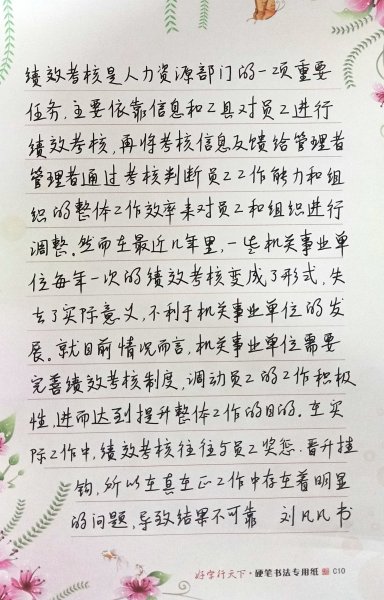 绩效考核是人力资源部门的一项重要
任务,主要依靠信息和工具对员工进行
绩效考核,再将考核信息反馈给管理者
管理者通过考核判断员工工作能力和组
织的整体工作效率来对员工和组织进行
调整。然而在最近几年里,一些机关事业单
位每年一次的绩效考核变成了形式,失
去了实际意义,不利于机关事业单位的发
展。就目前情况而言,机关事业单位需要
完善绩效考核制度,调动员工的工作积极
性,进而达到提升整体工作的目的。在实
际工作中,绩效考核往往与员工奖惩、晋升挂
钩,所以在真在正工作中存在着明显
的问题,导致结果不可靠 刘凡凡书
好字行天下·硬笔书法专用纸 C10